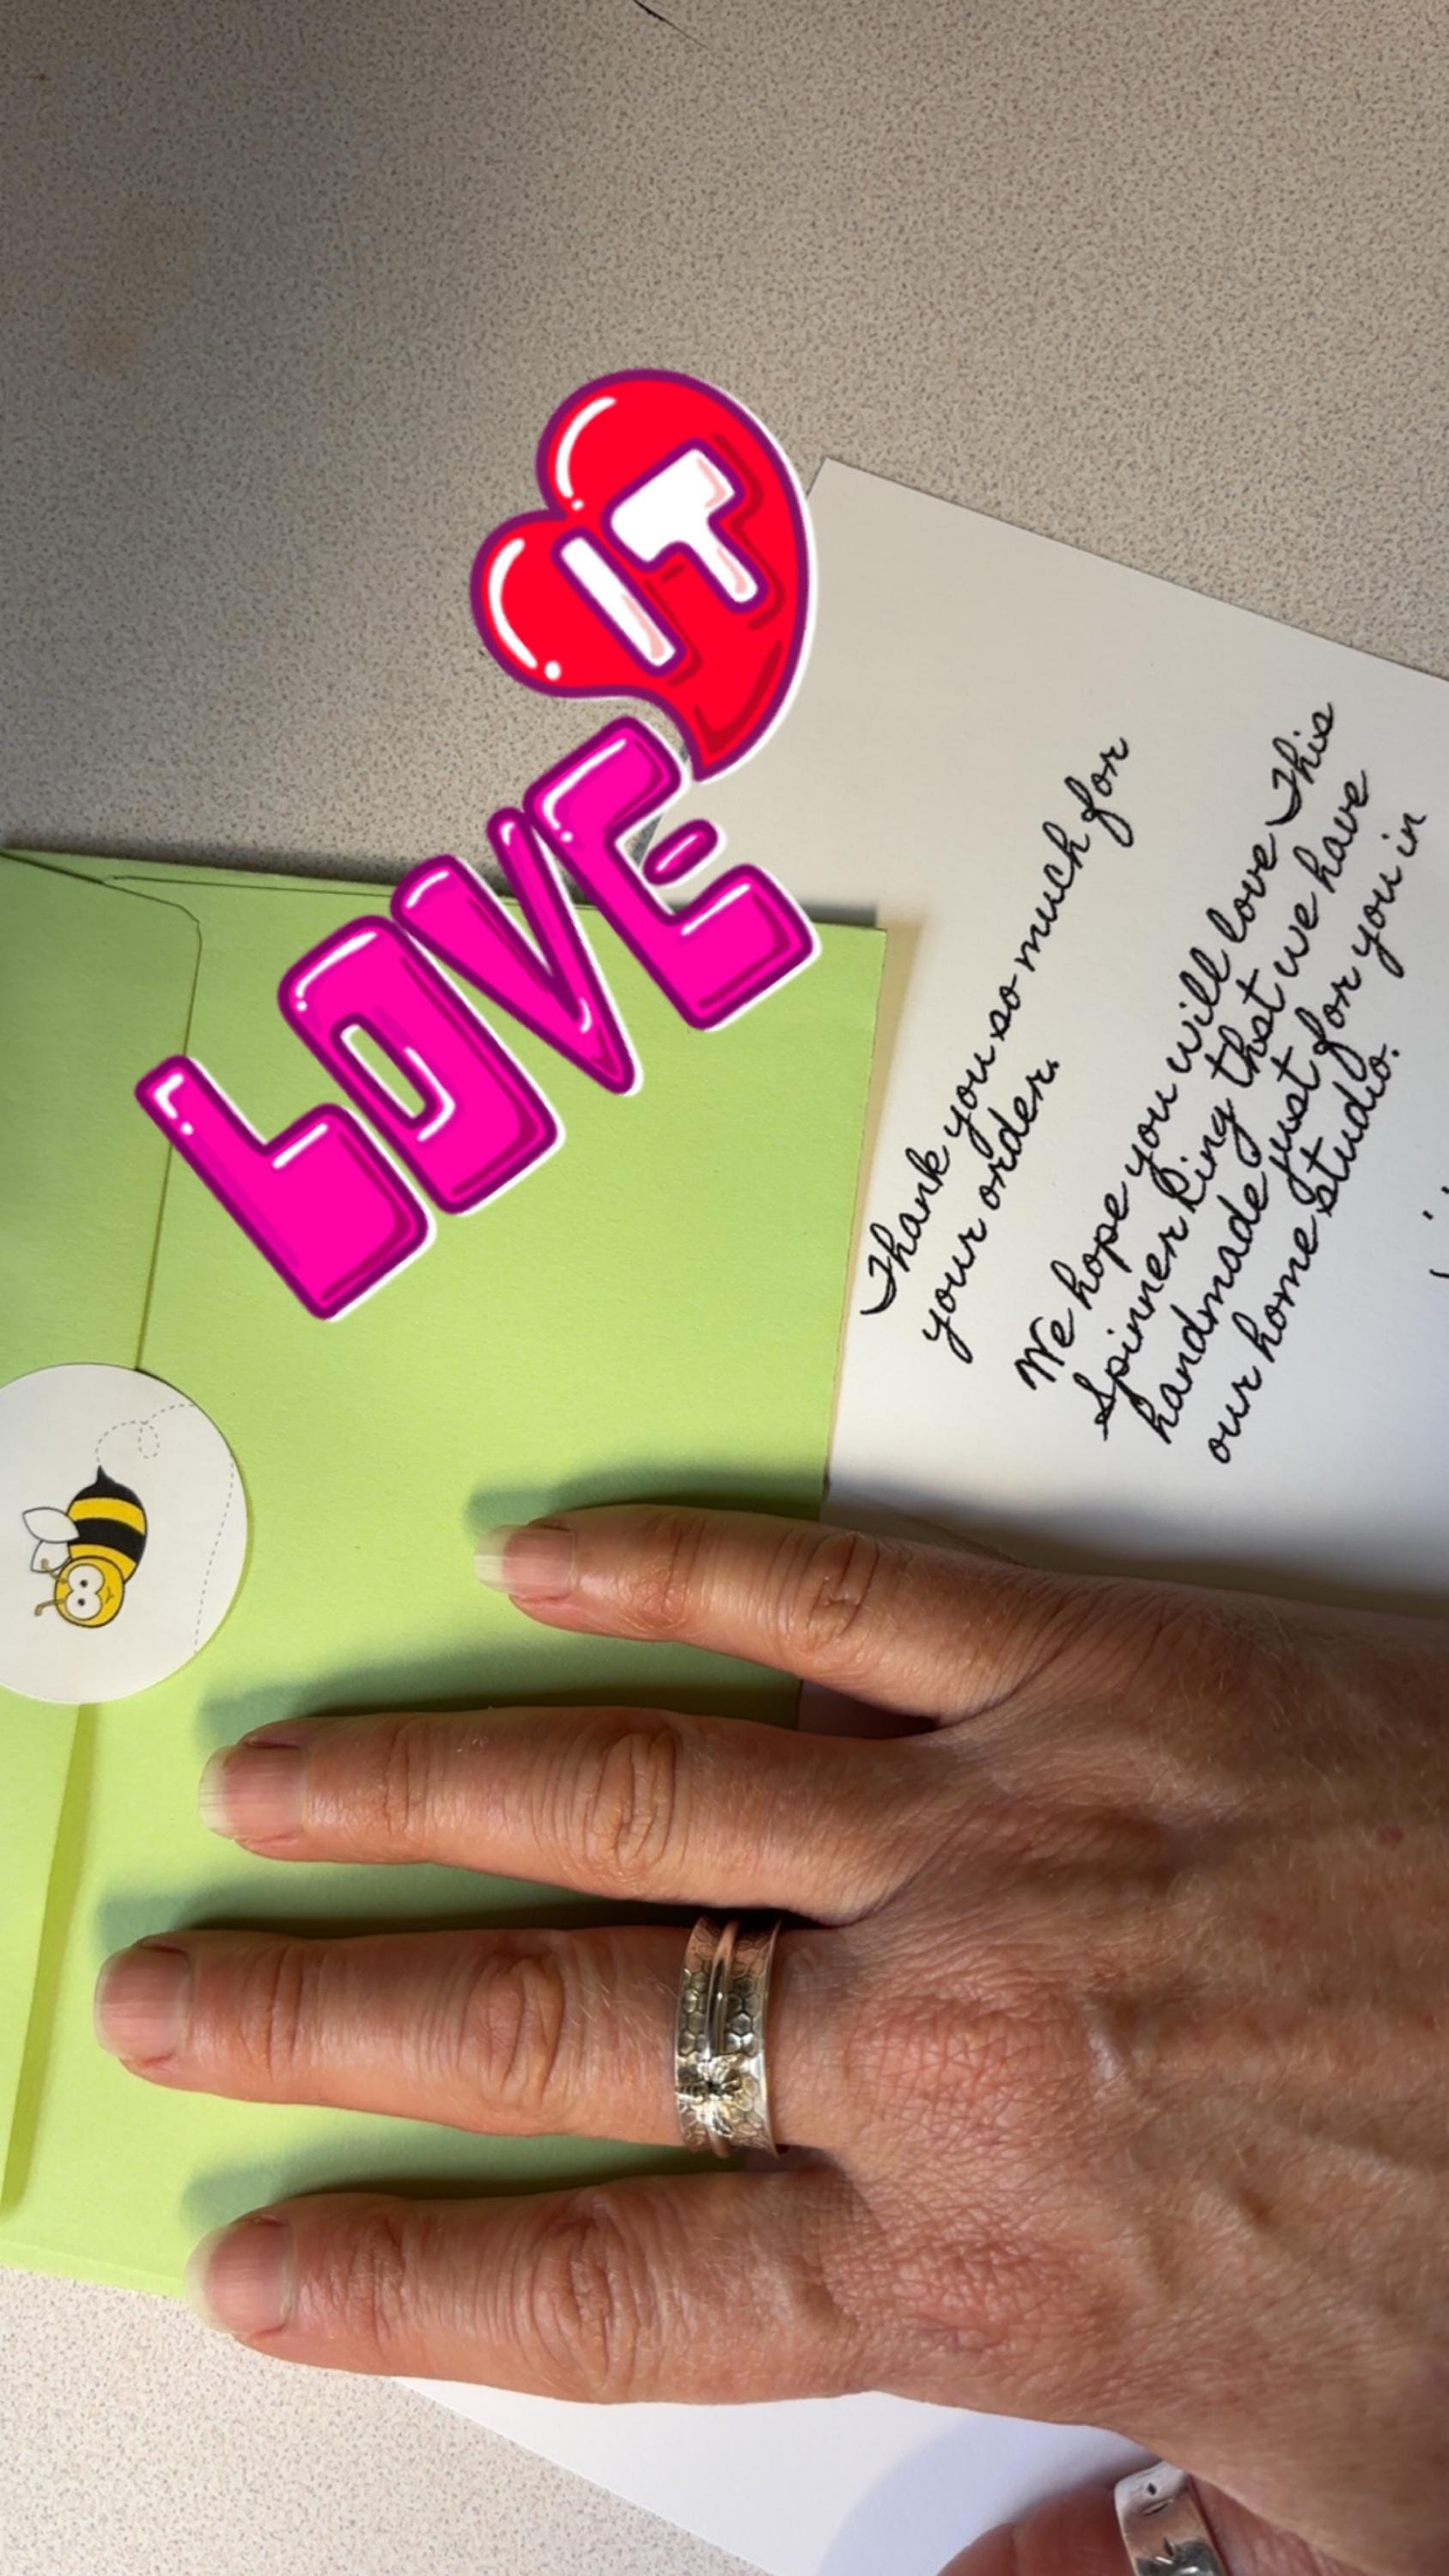 LOVE IT
Thank you so much for
your order.
We hope you will love This
Spinner Ring that we have
handmade just for you in
our home studio.